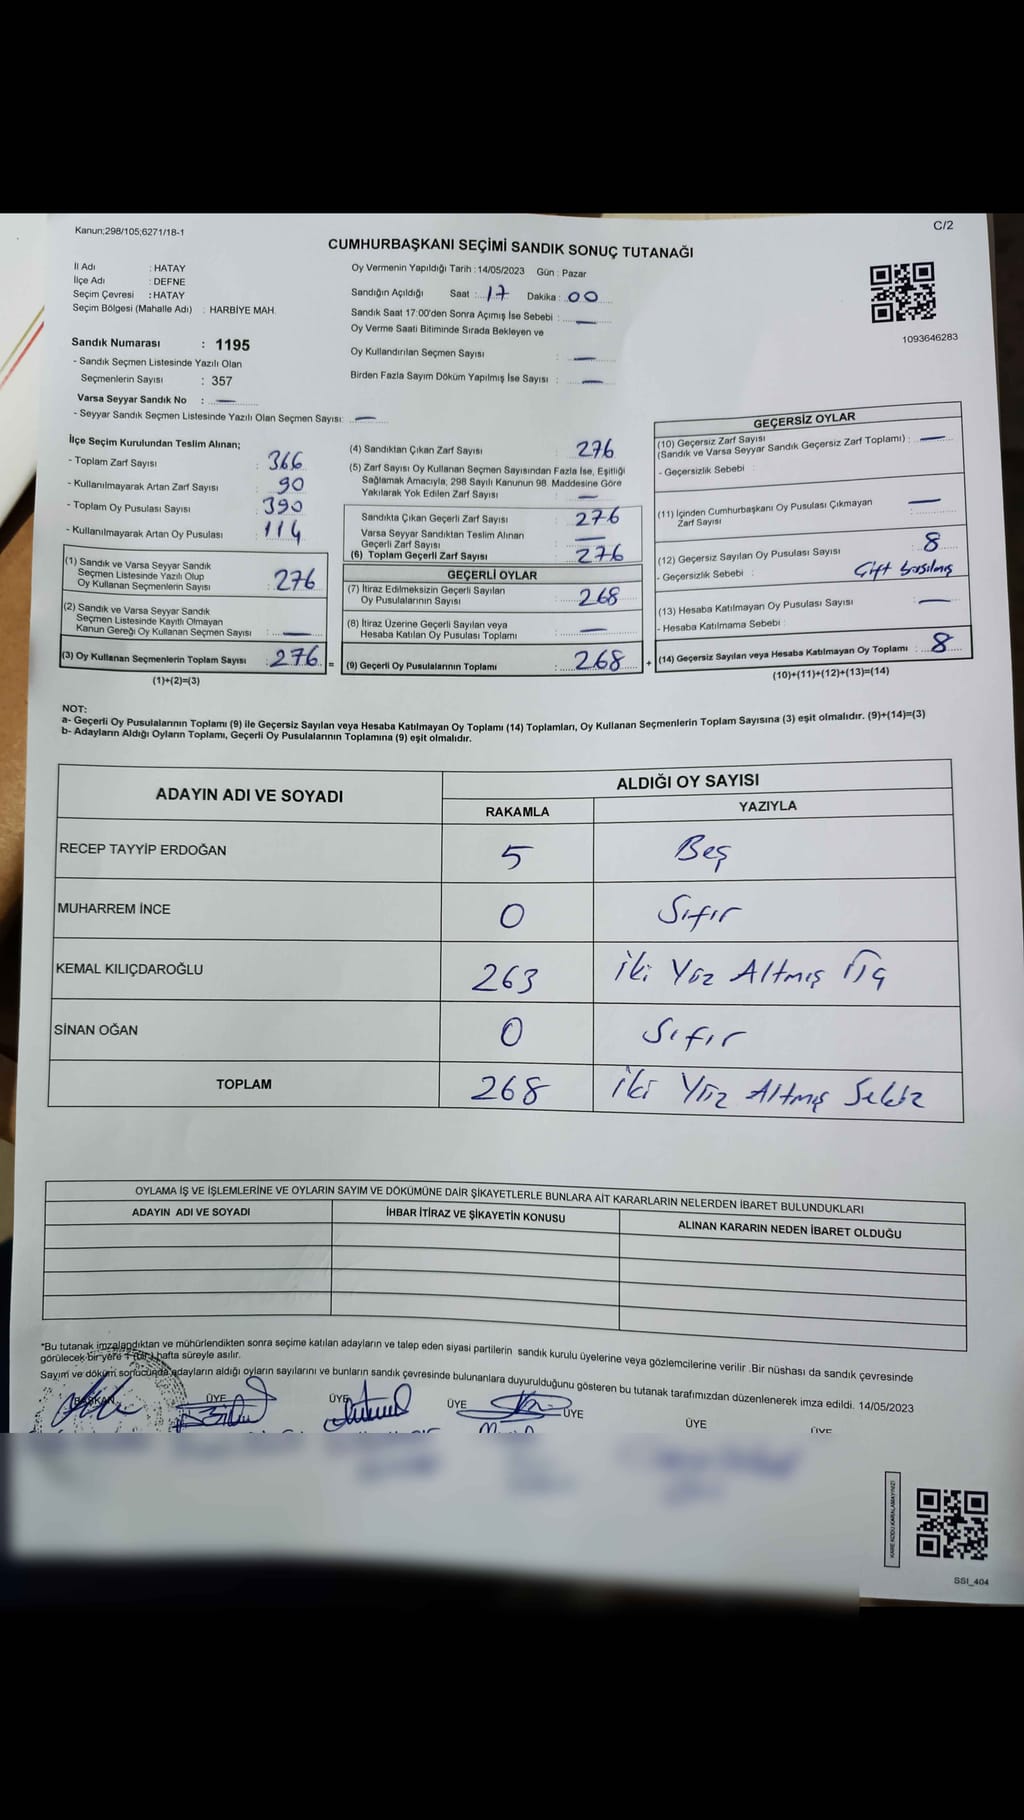 Kanun;298/105;6271/18-1
C/2
CUMHURBAŞKANI SEÇİMİ SANDIK SONUÇ TUTANAĞI
İl Adı : HATAY
İlçe Adı : DEFNE
Seçim Çevresi : HATAY
Seçim Bölgesi (Mahalle Adı) : HARBİYE MAH.
Sandık Numarası : 1195
- Sandık Seçmen Listesinde Yazılı Olan
Seçmenlerin Sayısı : 357
Varsa Seyyar Sandık No : —
- Seyyar Sandık Seçmen Listesinde Yazılı Olan Seçmen Sayısı: —
Oy Vermenin Yapıldığı Tarih : 14/05/2023 Gün : Pazar
Sandığın Açıldığı Saat : 17 Dakika : 00
Sandık Saat 17:00'den Sonra Açımış İse Sebebi : —
Oy Verme Saati Bitiminde Sırada Bekleyen ve
Oy Kullandırılan Seçmen Sayısı : —
Birden Fazla Sayım Döküm Yapılmış İse Sayısı : —
1093646283
İlçe Seçim Kurulundan Teslim Alınan;
- Toplam Zarf Sayısı : 366
- Kullanılmayarak Artan Zarf Sayısı : 90
- Toplam Oy Pusulası Sayısı : 390
- Kullanılmayarak Artan Oy Pusulası : 114
(1) Sandık ve Varsa Seyyar Sandık
Seçmen Listesinde Yazılı Olup
Oy Kullanan Seçmenlerin Sayısı : 276
(2) Sandık ve Varsa Seyyar Sandık
Seçmen Listesinde Kayıtlı Olmayan
Kanun Gereği Oy Kullanan Seçmen Sayısı : —
(3) Oy Kullanan Seçmenlerin Toplam Sayısı : 276 =
(1)+(2)=(3)
(4) Sandıktan Çıkan Zarf Sayısı : 276
(5) Zarf Sayısı Oy Kullanan Seçmen Sayısından Fazla İse, Eşitliği
Sağlamak Amacıyla, 298 Sayılı Kanunun 98. Maddesine Göre
Yakılarak Yok Edilen Zarf Sayısı : —
Sandıkta Çıkan Geçerli Zarf Sayısı : 276
Varsa Seyyar Sandıktan Teslim Alınan
Geçerli Zarf Sayısı : —
(6) Toplam Geçerli Zarf Sayısı : 276
GEÇERLİ OYLAR
(7) İtiraz Edilmeksizin Geçerli Sayılan
Oy Pusulalarının Sayısı : 268
(8) İtiraz Üzerine Geçerli Sayılan veya
Hesaba Katılan Oy Pusulası Toplamı : —
(9) Geçerli Oy Pusulalarının Toplamı : 268 +
GEÇERSİZ OYLAR
(10) Geçersiz Zarf Sayısı
(Sandık ve Varsa Seyyar Sandık Geçersiz Zarf Toplamı) : —
- Geçersizlik Sebebi :
(11) İçinden Cumhurbaşkanı Oy Pusulası Çıkmayan
Zarf Sayısı : —
(12) Geçersiz Sayılan Oy Pusulası Sayısı : 8
- Geçersizlik Sebebi : Çift basılmış
(13) Hesaba Katılmayan Oy Pusulası Sayısı : —
- Hesaba Katılmama Sebebi :
(14) Geçersiz Sayılan veya Hesaba Katılmayan Oy Toplamı : 8
(10)+(11)+(12)+(13)=(14)
NOT:
a- Geçerli Oy Pusulalarının Toplamı (9) ile Geçersiz Sayılan veya Hesaba Katılmayan Oy Toplamı (14) Toplamları, Oy Kullanan Seçmenlerin Toplam Sayısına (3) eşit olmalıdır. (9)+(14)=(3)
b- Adayların Aldığı Oyların Toplamı, Geçerli Oy Pusulalarının Toplamına (9) eşit olmalıdır.
ADAYIN ADI VE SOYADI ALDIĞI OY SAYISI
RAKAMLA YAZIYLA
RECEP TAYYİP ERDOĞAN 5 Beş
MUHARREM İNCE 0 Sıfır
KEMAL KILIÇDAROĞLU 263 İki Yüz Altmış Üç
SİNAN OĞAN 0 Sıfır
TOPLAM 268 İki Yüz Altmış Sekiz
OYLAMA İŞ VE İŞLEMLERİNE VE OYLARIN SAYIM VE DÖKÜMÜNE DAİR ŞİKAYETLERLE BUNLARA AİT KARARLARIN NELERDEN İBARET BULUNDUKLARI
ADAYIN ADI VE SOYADI İHBAR İTİRAZ VE ŞİKAYETİN KONUSU ALINAN KARARIN NEDEN İBARET OLDUĞU
*Bu tutanak imzalandıktan ve mühürlendikten sonra seçime katılan adayların ve talep eden siyasi partilerin sandık kurulu üyelerine veya gözlemcilerine verilir .Bir nüshası da sandık çevresinde
görülecek bir yere 1 (bir) hafta süreyle asılır.
Sayım ve döküm sonucunda adayların aldığı oyların sayılarını ve bunların sandık çevresinde bulunanlara duyurulduğunu gösteren bu tutanak tarafımızdan düzenlenerek imza edildi. 14/05/2023
BAŞKAN ÜYE ÜYE ÜYE ÜYE ÜYE ÜYE
KARE KODU KARALAMAYINIZ!
SSI_404